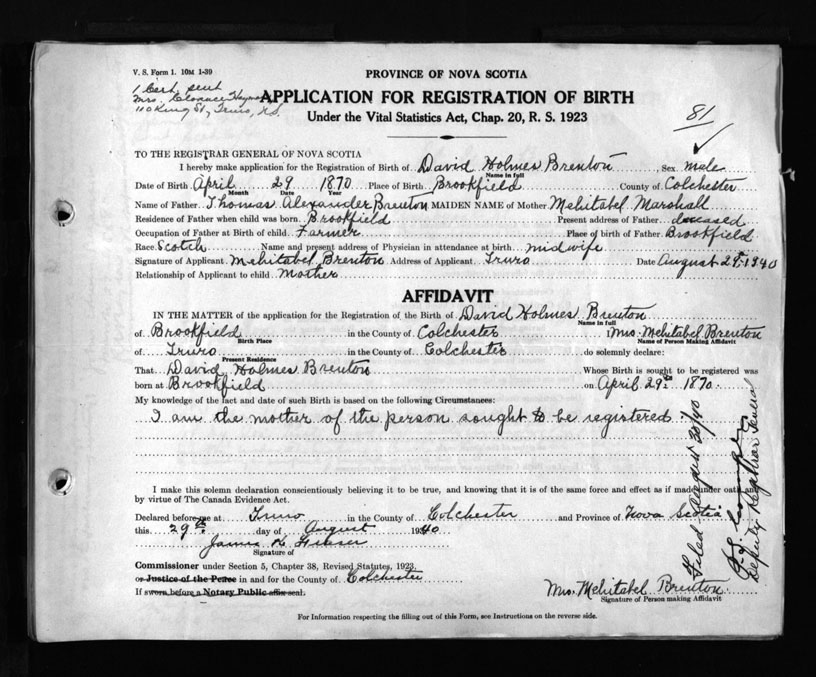 V. S. Form 1. 10M 1-39
1 Cert. sent
Mrs. Clarence Hayman
110 King St, Truro, N.S.
PROVINCE OF NOVA SCOTIA
APPLICATION FOR REGISTRATION OF BIRTH
Under the Vital Statistics Act, Chap. 20, R. S. 1923
81
TO THE REGISTRAR GENERAL OF NOVA SCOTIA
I hereby make application for the Registration of Birth of David Holmes Brenton Sex male
Name in full
Date of Birth April 29 1870 Place of Birth Brookfield County of Colchester
Month Date Year
Name of Father Thomas Alexander Brenton MAIDEN NAME of Mother Mehitabel Marshall
Residence of Father when child was born Brookfield Present address of Father deceased
Occupation of Father at Birth of child Farmer Place of birth of Father Brookfield
Race Scotch Name and present address of Physician in attendance at birth midwife
Signature of Applicant Mehitabel Brenton Address of Applicant Truro Date August 29th 1940
Relationship of Applicant to child Mother
AFFIDAVIT
IN THE MATTER of the application for Registration of the Birth of David Holmes Brenton
Name in full
of Brookfield in the County of Colchester I Mrs. Mehitabel Brenton
Birth Place Name of Person Making Affidavit
of Truro in the County of Colchester do solemnly declare:
Present Residence
That David Holmes Brenton Whose Birth is sought to be registered was
born at Brookfield on April 29th 1870
My knowledge of the fact and date of such Birth is based on the following Circumstances:
I am the mother of the person sought to be registered
I make this solemn declaration conscientiously believing it to be true, and knowing that it is of the same force and effect as if made under oath and
by virtue of The Canada Evidence Act.
Declared before me at Truro in the County of Colchester and Province of Nova Scotia
this 29th day of August 1940
James
Signature of
Commissioner under Section 5, Chapter 38, Revised Statutes, 1923.
or Justice of the Peace in and for the County of Colchester
If sworn before a Notary Public affix seal.
Mrs. Mehitabel Brenton
Signature of Person making Affidavit
For Information respecting the filling out of this Form, see Instructions on the reverse side.
Filed August 30/40
Deputy Registrar General